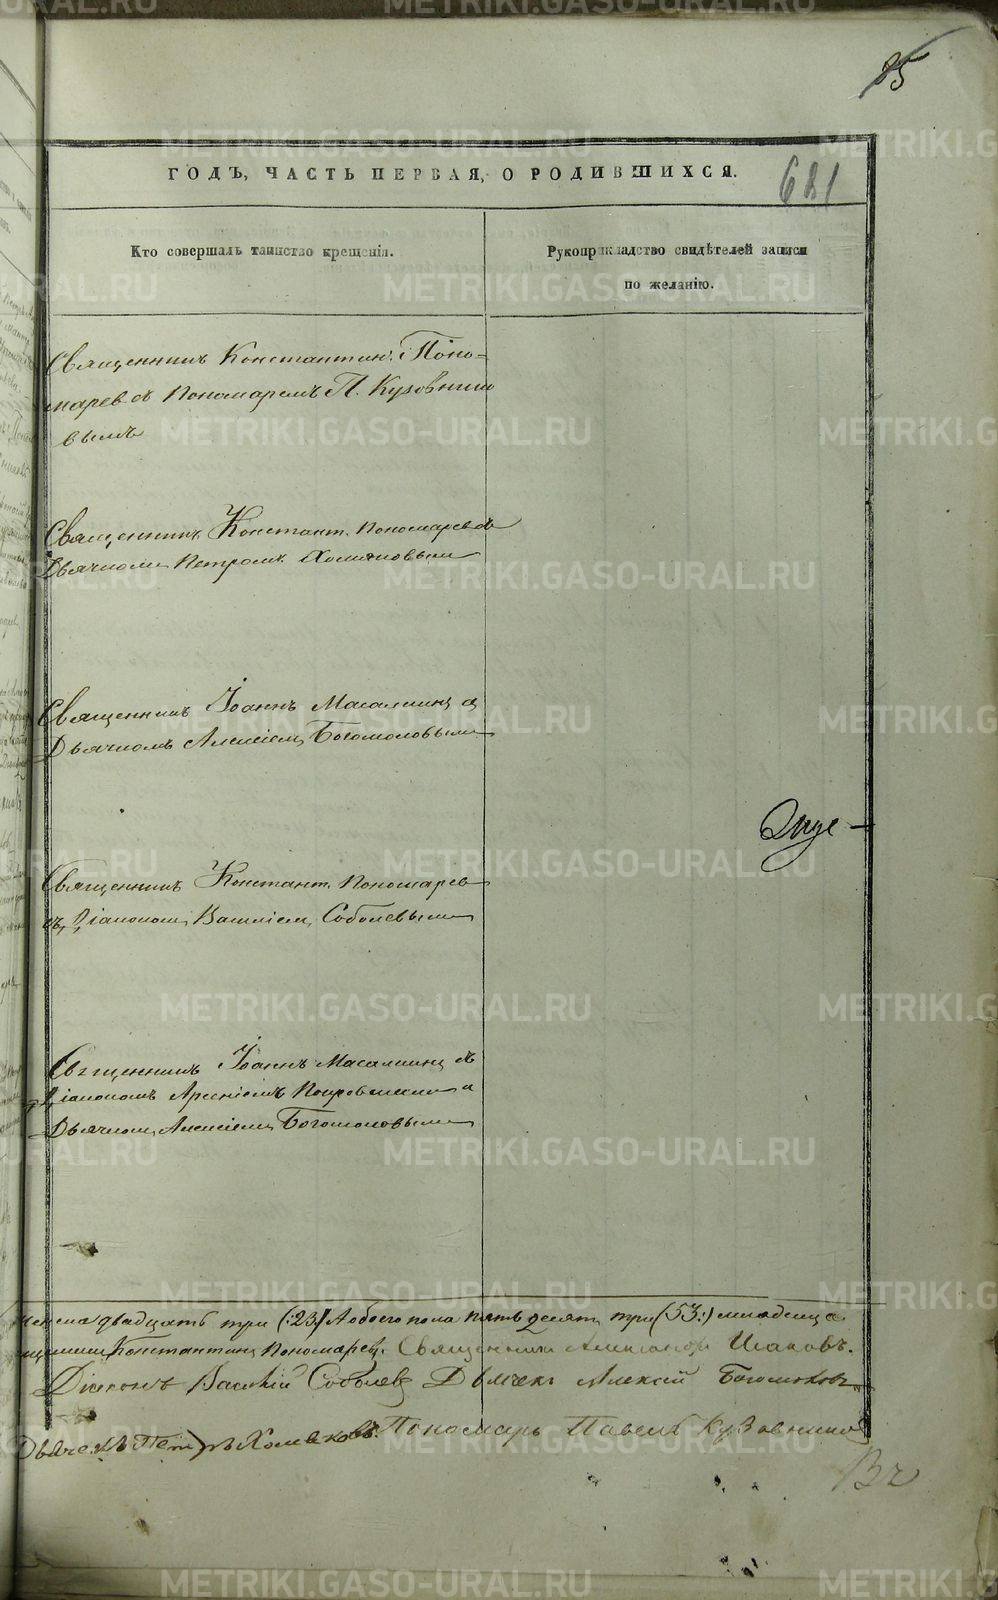 85
ГОДЪ, ЧАСТЬ ПЕРВАЯ, О РОДИВШИХСЯ.
681
Кто совершалъ таинство крещенія.
Рукоприкладство свидѣтелей записи
по желанію.
Священникъ Константинъ Поно-
марев съ Пономаремъ П. Кузовнико
вымъ
Священникъ Констант. Пономаревъ съ
Дьячкомъ Петромъ Холмяковым
Священникъ Іоаннъ Масалкинъ съ
Дьячкомъ Алексіем Богомоловым
Священникъ Констант. Пономарев
съ Діакономъ Василіем Соболевым
Священникъ Іоаннъ Масалкинъ съ
Діакономъ Арсеніемъ Покровским и
Дьячкомъ Алексіем Богомоловым
двадцать три (:23:) А обоего пола пятьдесят три (:53:) младенца
Константинъ Пономарев. Священникъ Александръ Исаковъ.
Діаконъ Василій Соболевъ Дьячекъ Алексій Богомолов
Дьячекъ Петръ Холмяковъ. Пономарь Павелъ Кузовников
METRIKI.GASO-URAL.RU